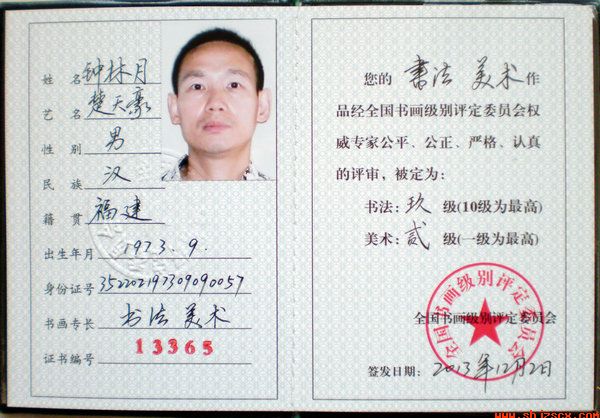 姓 名 钟林月
艺 名 楚天豪
性 别 男
民 族 汉
籍 贯 福建
出生年月 1973.9.
身份证号 352202197309090057
书画专长 书法 美术
证书编号 13365
您的 书法 美术 作
品经全国书画级别评定委员会权
威专家公平、公正、严格、认真
的评审，被定为：
书法：玖 级(10级为最高)
美术：贰 级(一级为最高)
全国书画级别评定委员会
全国书画级别评定委员会
签发日期：2013年12月2日
www.shjzscx.com